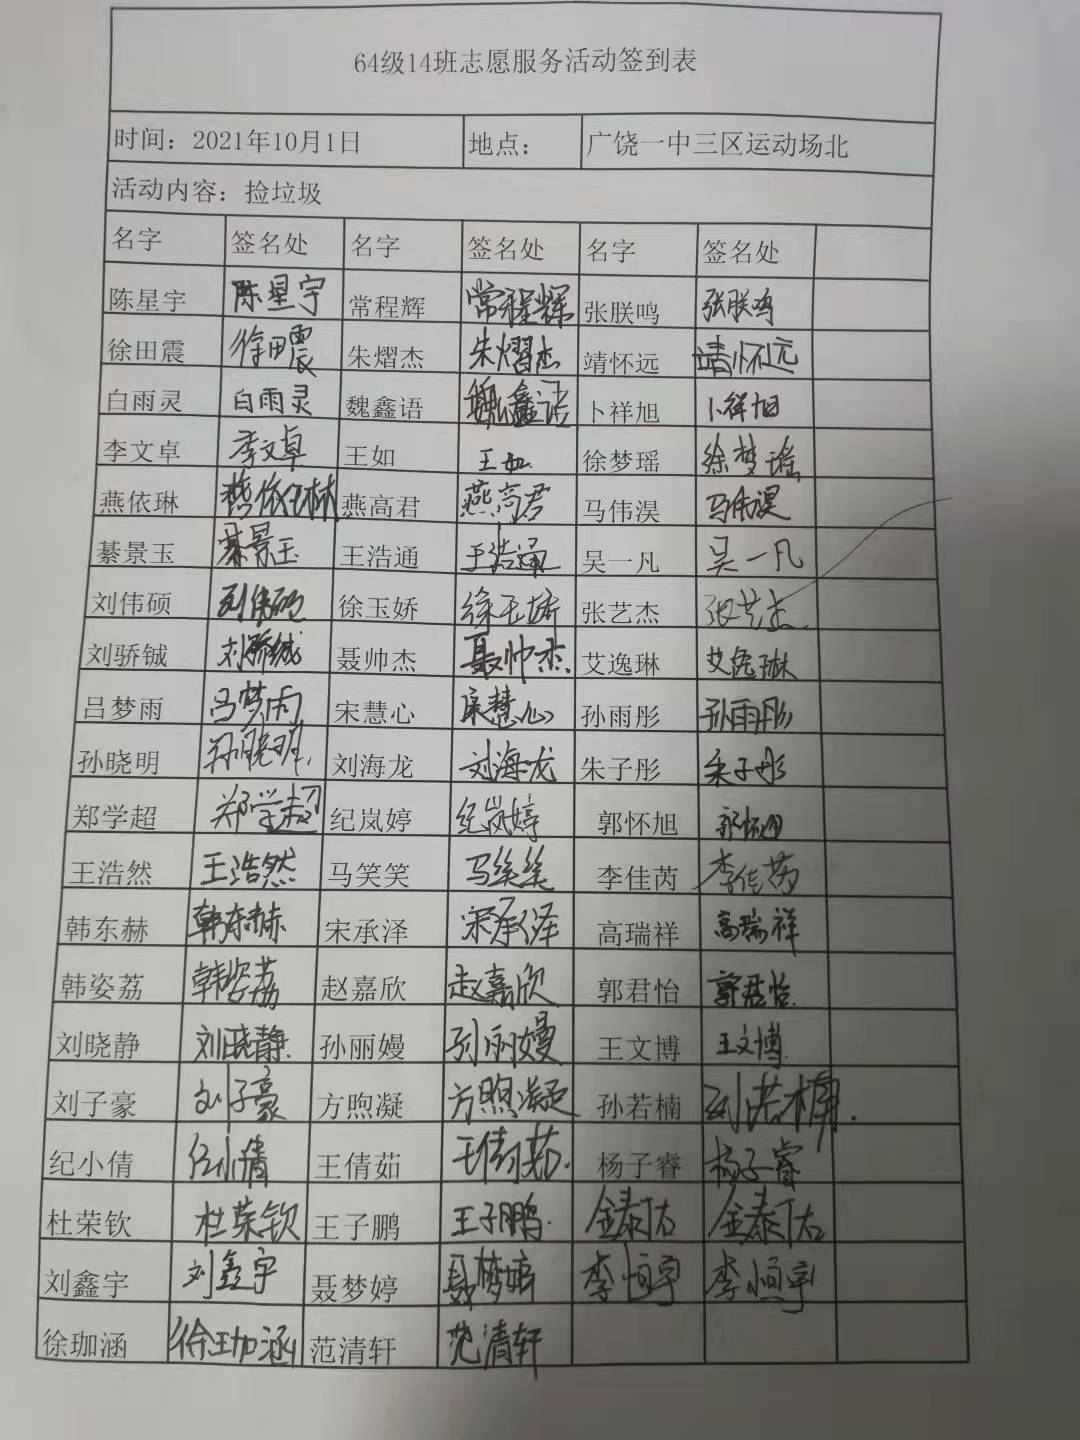 64级14班志愿服务活动签到表
时间：2021年10月1日 地点： 广饶一中三区运动场北
活动内容：捡垃圾
名字 签名处 名字 签名处 名字 签名处
陈星宇 陈星宇 常程辉 常程辉 张朕鸣 张朕鸣
徐田震 徐田震 朱熠杰 朱熠杰 靖怀远 靖怀远
白雨灵 白雨灵 魏鑫语 魏鑫语 卜祥旭 卜祥旭
李文卓 李文卓 王如 王如 徐梦瑶 徐梦瑶
燕依琳 燕依琳 燕高君 燕高君 马伟淏 马伟淏
綦景玉 綦景玉 王浩通 王浩通 吴一凡 吴一凡
刘伟硕 刘伟硕 徐玉娇 徐玉娇 张艺杰 张艺杰
刘骄铖 刘骄铖 聂帅杰 聂帅杰 艾逸琳 艾逸琳
吕梦雨 吕梦雨 宋慧心 宋慧心 孙雨彤 孙雨彤
孙晓明 孙晓明 刘海龙 刘海龙 朱子彤 朱子彤
郑学超 郑学超 纪岚婷 纪岚婷 郭怀旭 郭怀旭
王浩然 王浩然 马笑笑 马笑笑 李佳芮 李佳芮
韩东赫 韩东赫 宋承泽 宋承泽 高瑞祥 高瑞祥
韩姿荔 韩姿荔 赵嘉欣 赵嘉欣 郭君怡 郭君怡
刘晓静 刘晓静 孙丽嫚 孙丽嫚 王文博 王文博
刘子豪 刘子豪 方煦凝 方煦凝 孙若楠 孙若楠
纪小倩 纪小倩 王倩茹 王倩茹 杨子睿 杨子睿
杜荣钦 杜荣钦 王子鹏 王子鹏 金泰佑 金泰佑
刘鑫宇 刘鑫宇 聂梦婷 聂梦婷 李恒宇 李恒宇
徐珈涵 徐珈涵 范清轩 范清轩